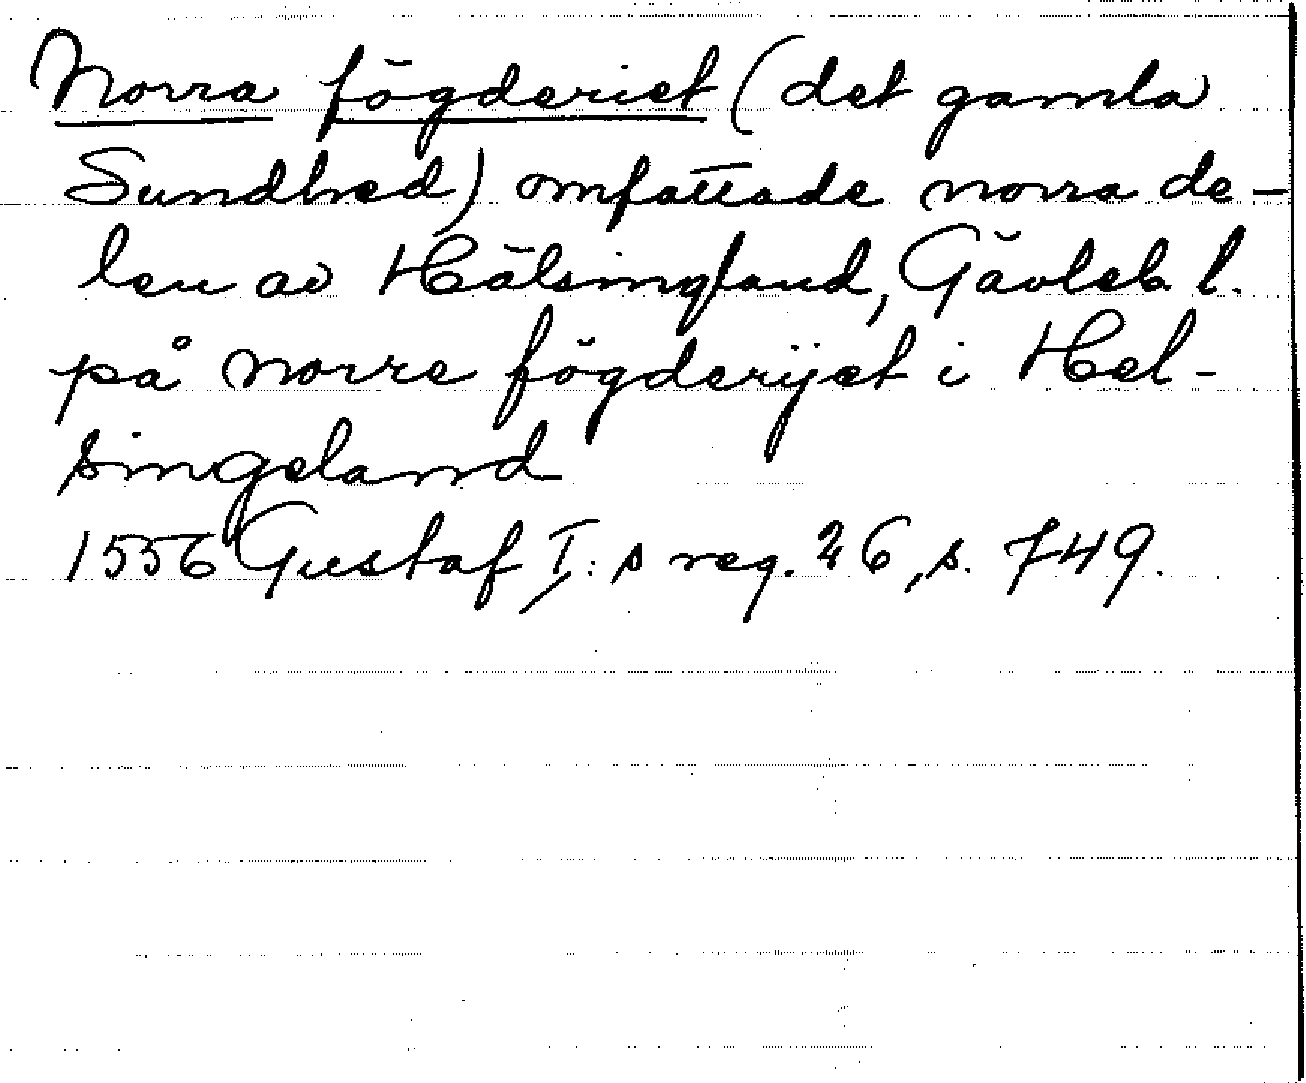 Norra fögderiet (det gamla
Sundhed) omfattade norra de-
len av Hälsingland, Gävleb. l.
på norre fögderijet i Hel-
singeland
1556 Gustaf I:s reg. 26, s. 749.